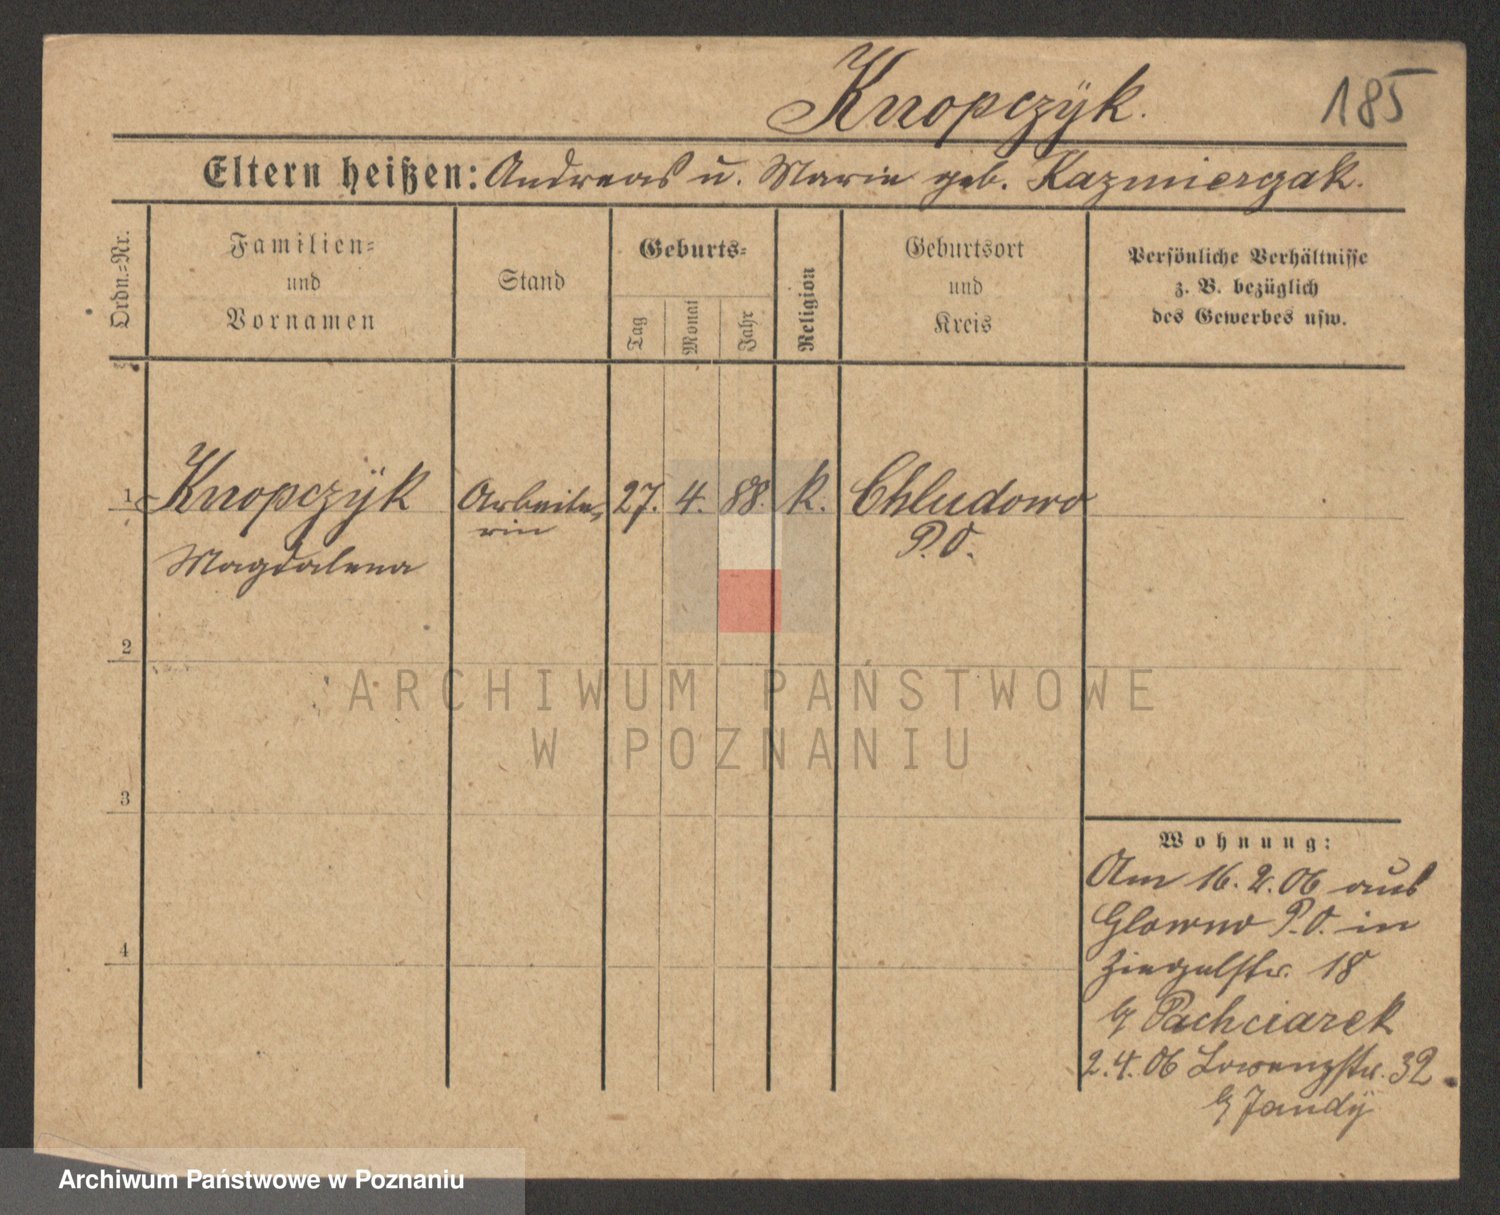 Knopczÿk.
185
Eltern heißen: Andreas u. Marie geb. Kazmierzak.
Ordn.-Nr.
Familien- und Vornamen
Stand
Geburts-
Tag
Monat
Jahr
Religion
Geburtsort und Kreis
Persönliche Verhältnisse
z. B. bezüglich
des Gewerbes usw.
1 Knopczÿk Arbeite- 27. 4. 88. k. Chludowo
Magdalena rin P.O.
2
ARCHIWUM PAŃSTWOWE
W POZNANIU
3
4
Wohnung:
Am 16.2.06 aus
Glowno P.O. in
Ziegelstr. 18
b/ Pachciarek
2.4.06 Lorenzstr. 32
b/ Jandÿ
Archiwum Państwowe w Poznaniu